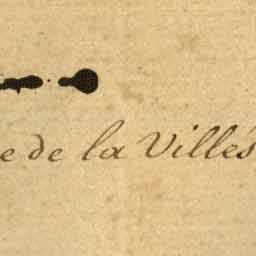 e de la Villes